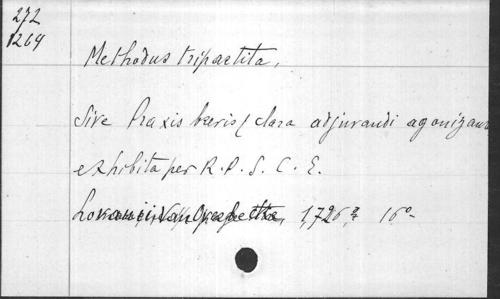 272
1264
Methodus tripartita,
sive Praxis brevis / clara adjurandi agonizan
exhibita per R. P. S. C. E.
Lovanii, Van Overbeke, 1726 16°